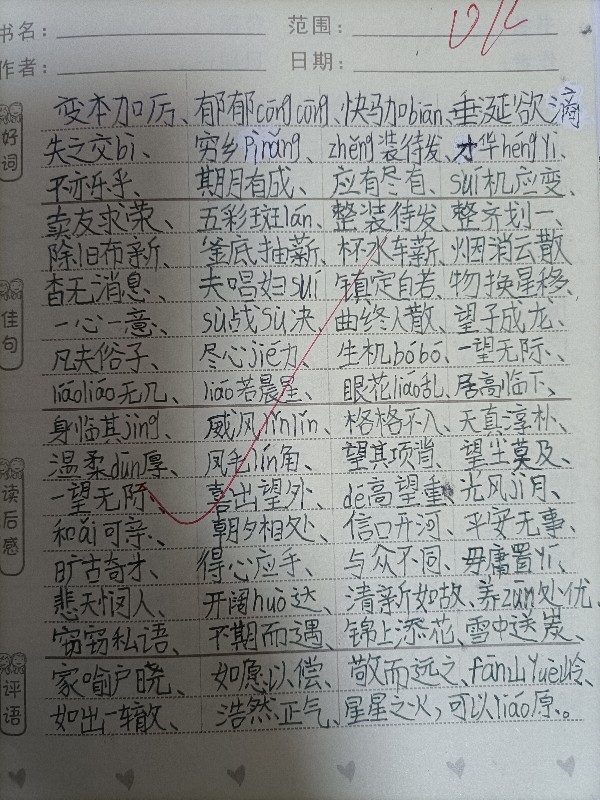 书名： 范围：
作者： 日期：
好词
佳句
读后感
评语
变本加厉、郁郁cōngcōng、快马加biān、垂涎欲滴
失之交bì、穷乡pìrǎng、zhěng装待发、才华héngyì、
平亦乐乎、期月有成、应有尽有、suí机应变、
卖友求荣、五彩斑lán、整装待发、整齐划一、
除旧布新、釜底抽薪、杯水车薪、烟消云散
杳无消息、夫唱妇suí、镇定自若、物换星移、
一心一意、sù战sù决、曲终人散、望子成龙、
凡夫俗子、尽心jié力、生机bóbó、一望无际、
liáoliáo无几、liáo若晨星、眼花liáo乱、居高临下、
身临其jìng、威风lǐnlǐn、格格不入、天真淳朴、
温柔dūn厚、凤毛lín角、望其项背、望尘莫及、
一望无际、喜出望外、dé高望重、光风jì月、
和ǎi可亲、朝夕相处、信口开河、平安无事、
旷古奇才、得心应手、与众不同、毋庸置yí、
悲天悯人、开阔huò达、清新如故、养zūn处优、
窃窃私语、不期而遇、锦上添花、雪中送炭、
家喻户晓、如愿以偿、敬而远之、fān山yuè岭、
如出一辙、浩然正气、星星之火，可以liáo原。。